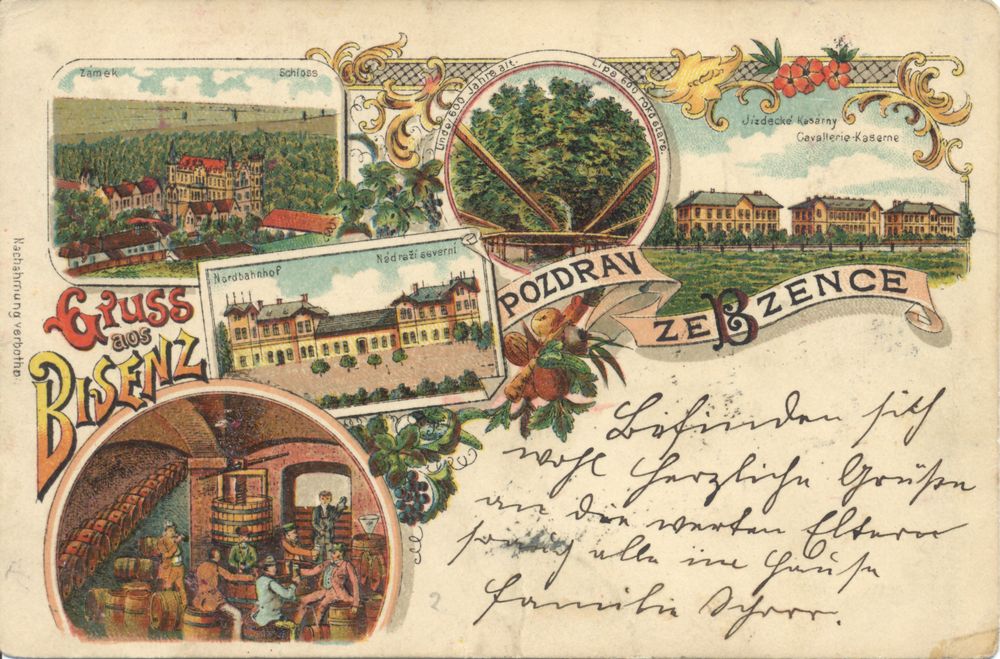 Zámek
Schloss
Linde, 600 Jahre alt.
Lípa 600 roků stará.
Jízdecké Kasárny
Cavallerie-Kaserne
Nordbahnhof
Nádraží severní
Gruss
aus
BISENZ
POZDRAV
ZE BZENCE
Nachahmung verboten
Befinden sich
wohl herzliche Grüße
an die werten Eltern
sowie alle im Hause
Familie